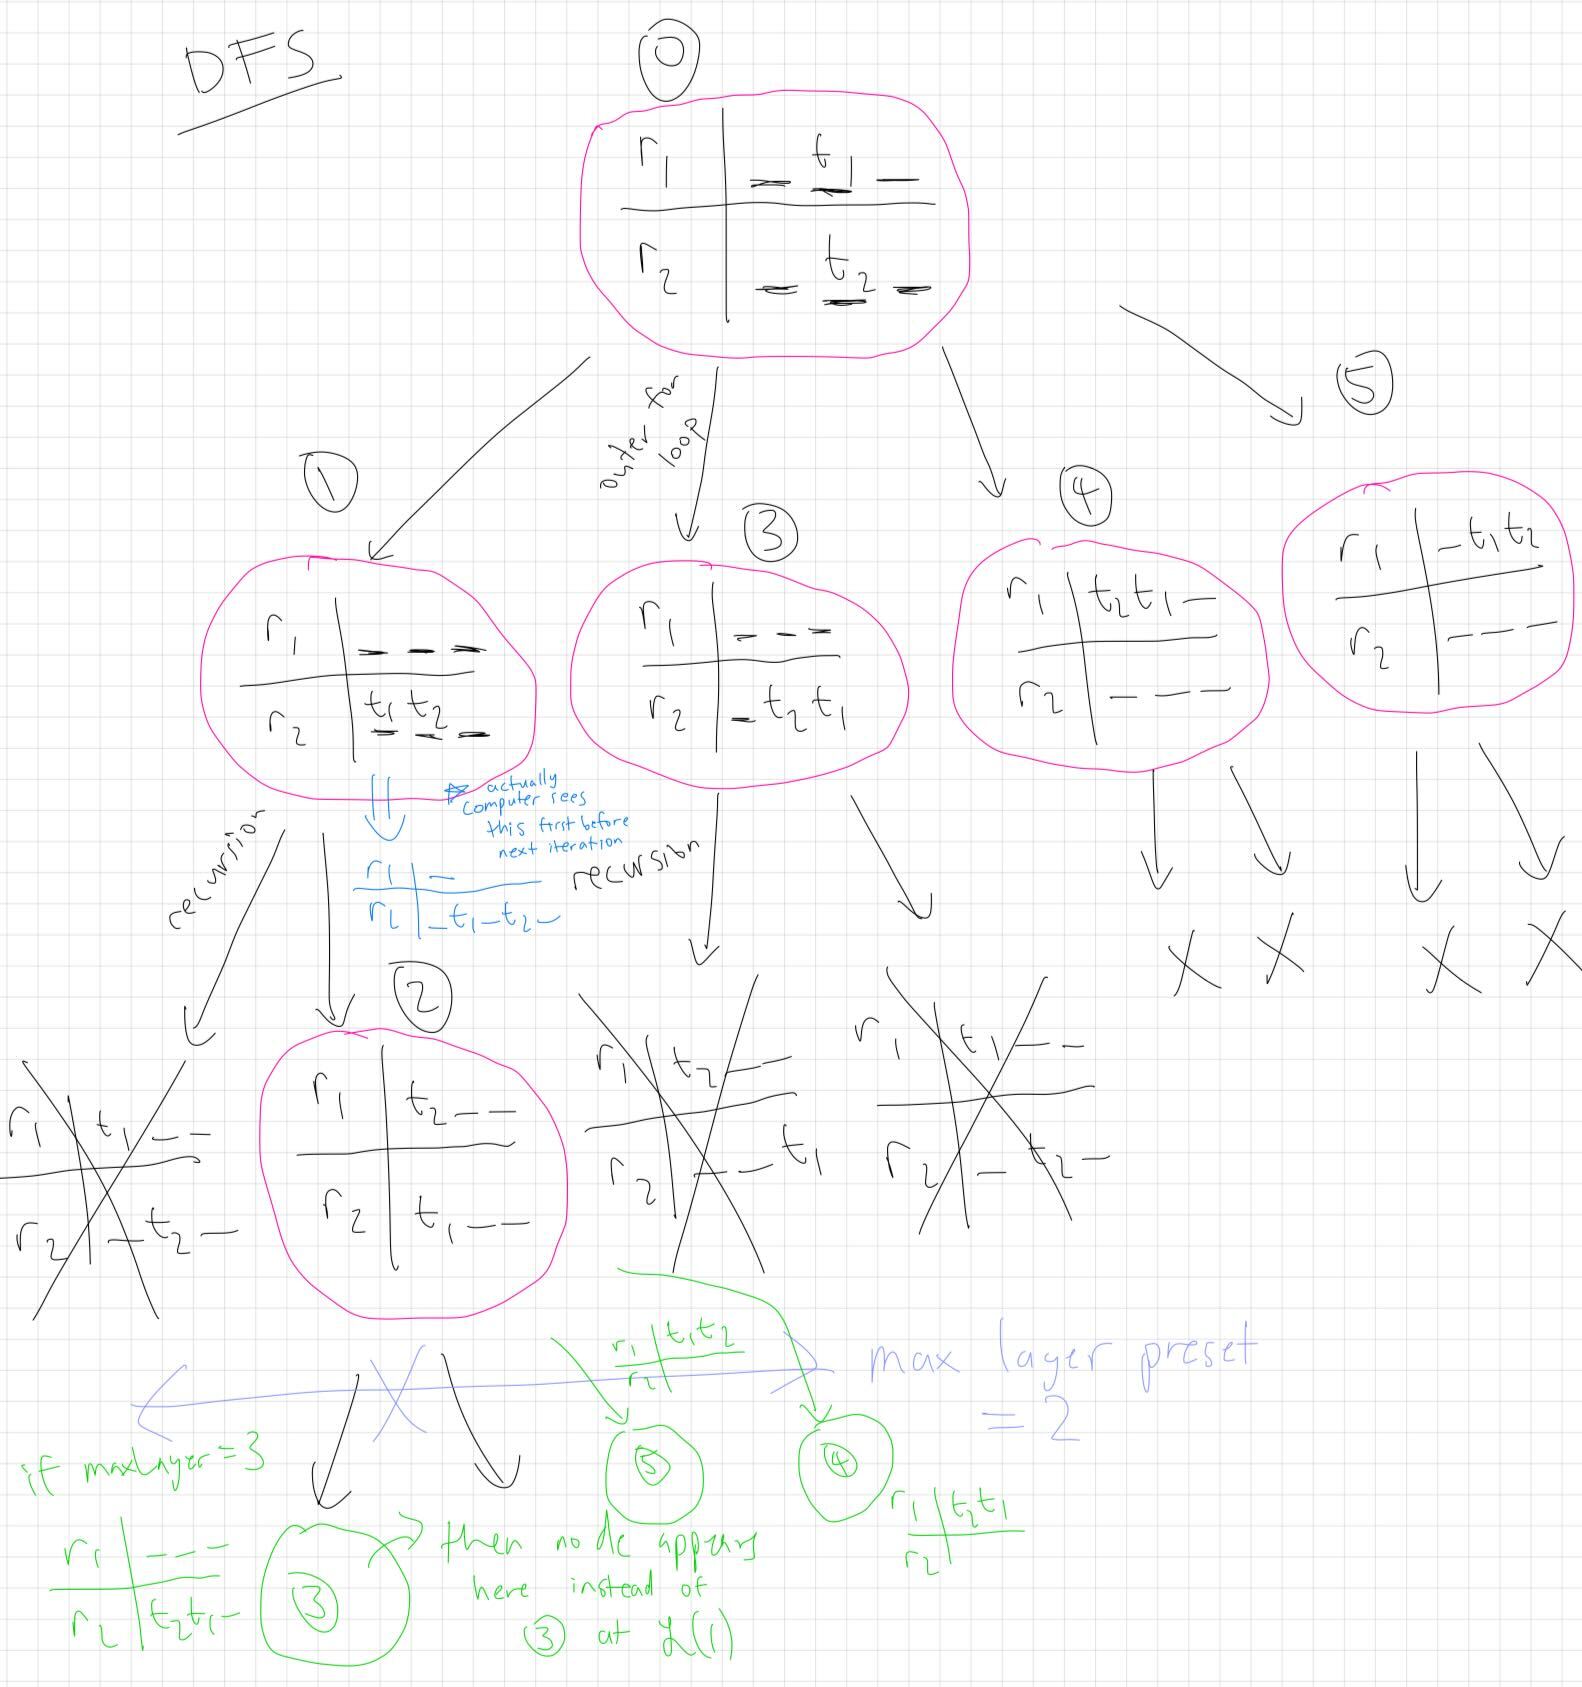 DFS
0
r1 _ t1 _
r2 _ t2 _
outer for
loop
5
1
3
4
r1 _ _ _
r2 t1 t2 _
r1 _ _ _
r2 _ t2 t1
r1 t2 t1 _
r2 _ _ _
r1 _ t1 t2
r2 _ _ _
* actually
computer sees
this first before
next iteration
r1 _
r2 _ t1 _ t2 _
recursion
recursion
X X X X
2
r1 t1 _ _
r2 _ t2 _
r1 t2 _ _
r2 t1 _ _
r1 t2 _ _
r2 _ _ t1
r1 t1 _ _
r2 _ t2 _
X
max layer preset
= 2
r1 t1 t2
r2
5
4
r1 t2 t1
r2
if maxLayer = 3
r1 _ _ _
r2 t2 t1 _
3
then node appears
here instead of
3 at L(1)